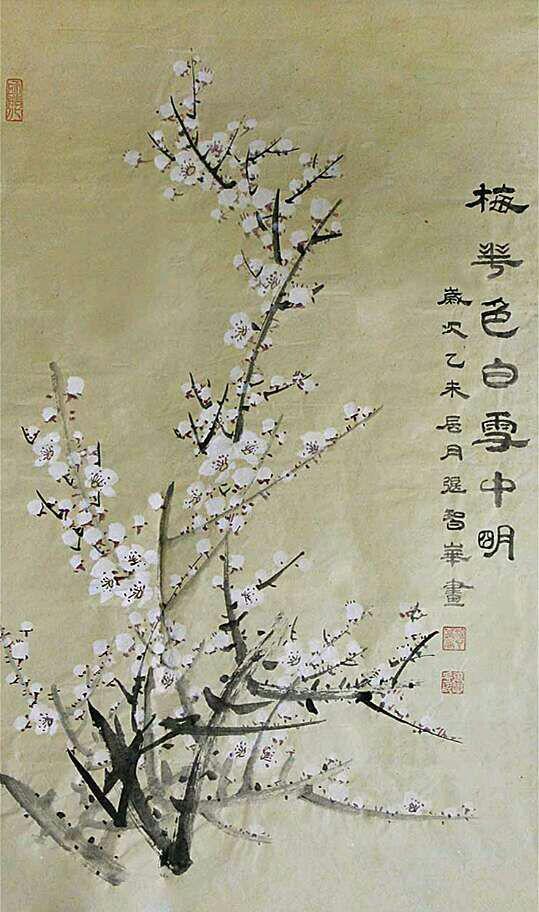 梅花色白雪中明
歲次乙未辰月張智華畫